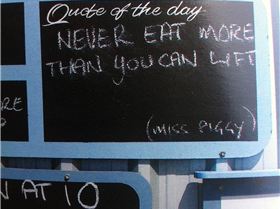 Quote of the day
NEVER EAT MORE
THAN YOU CAN LIFT
(MISS PIGGY)
N AT 10